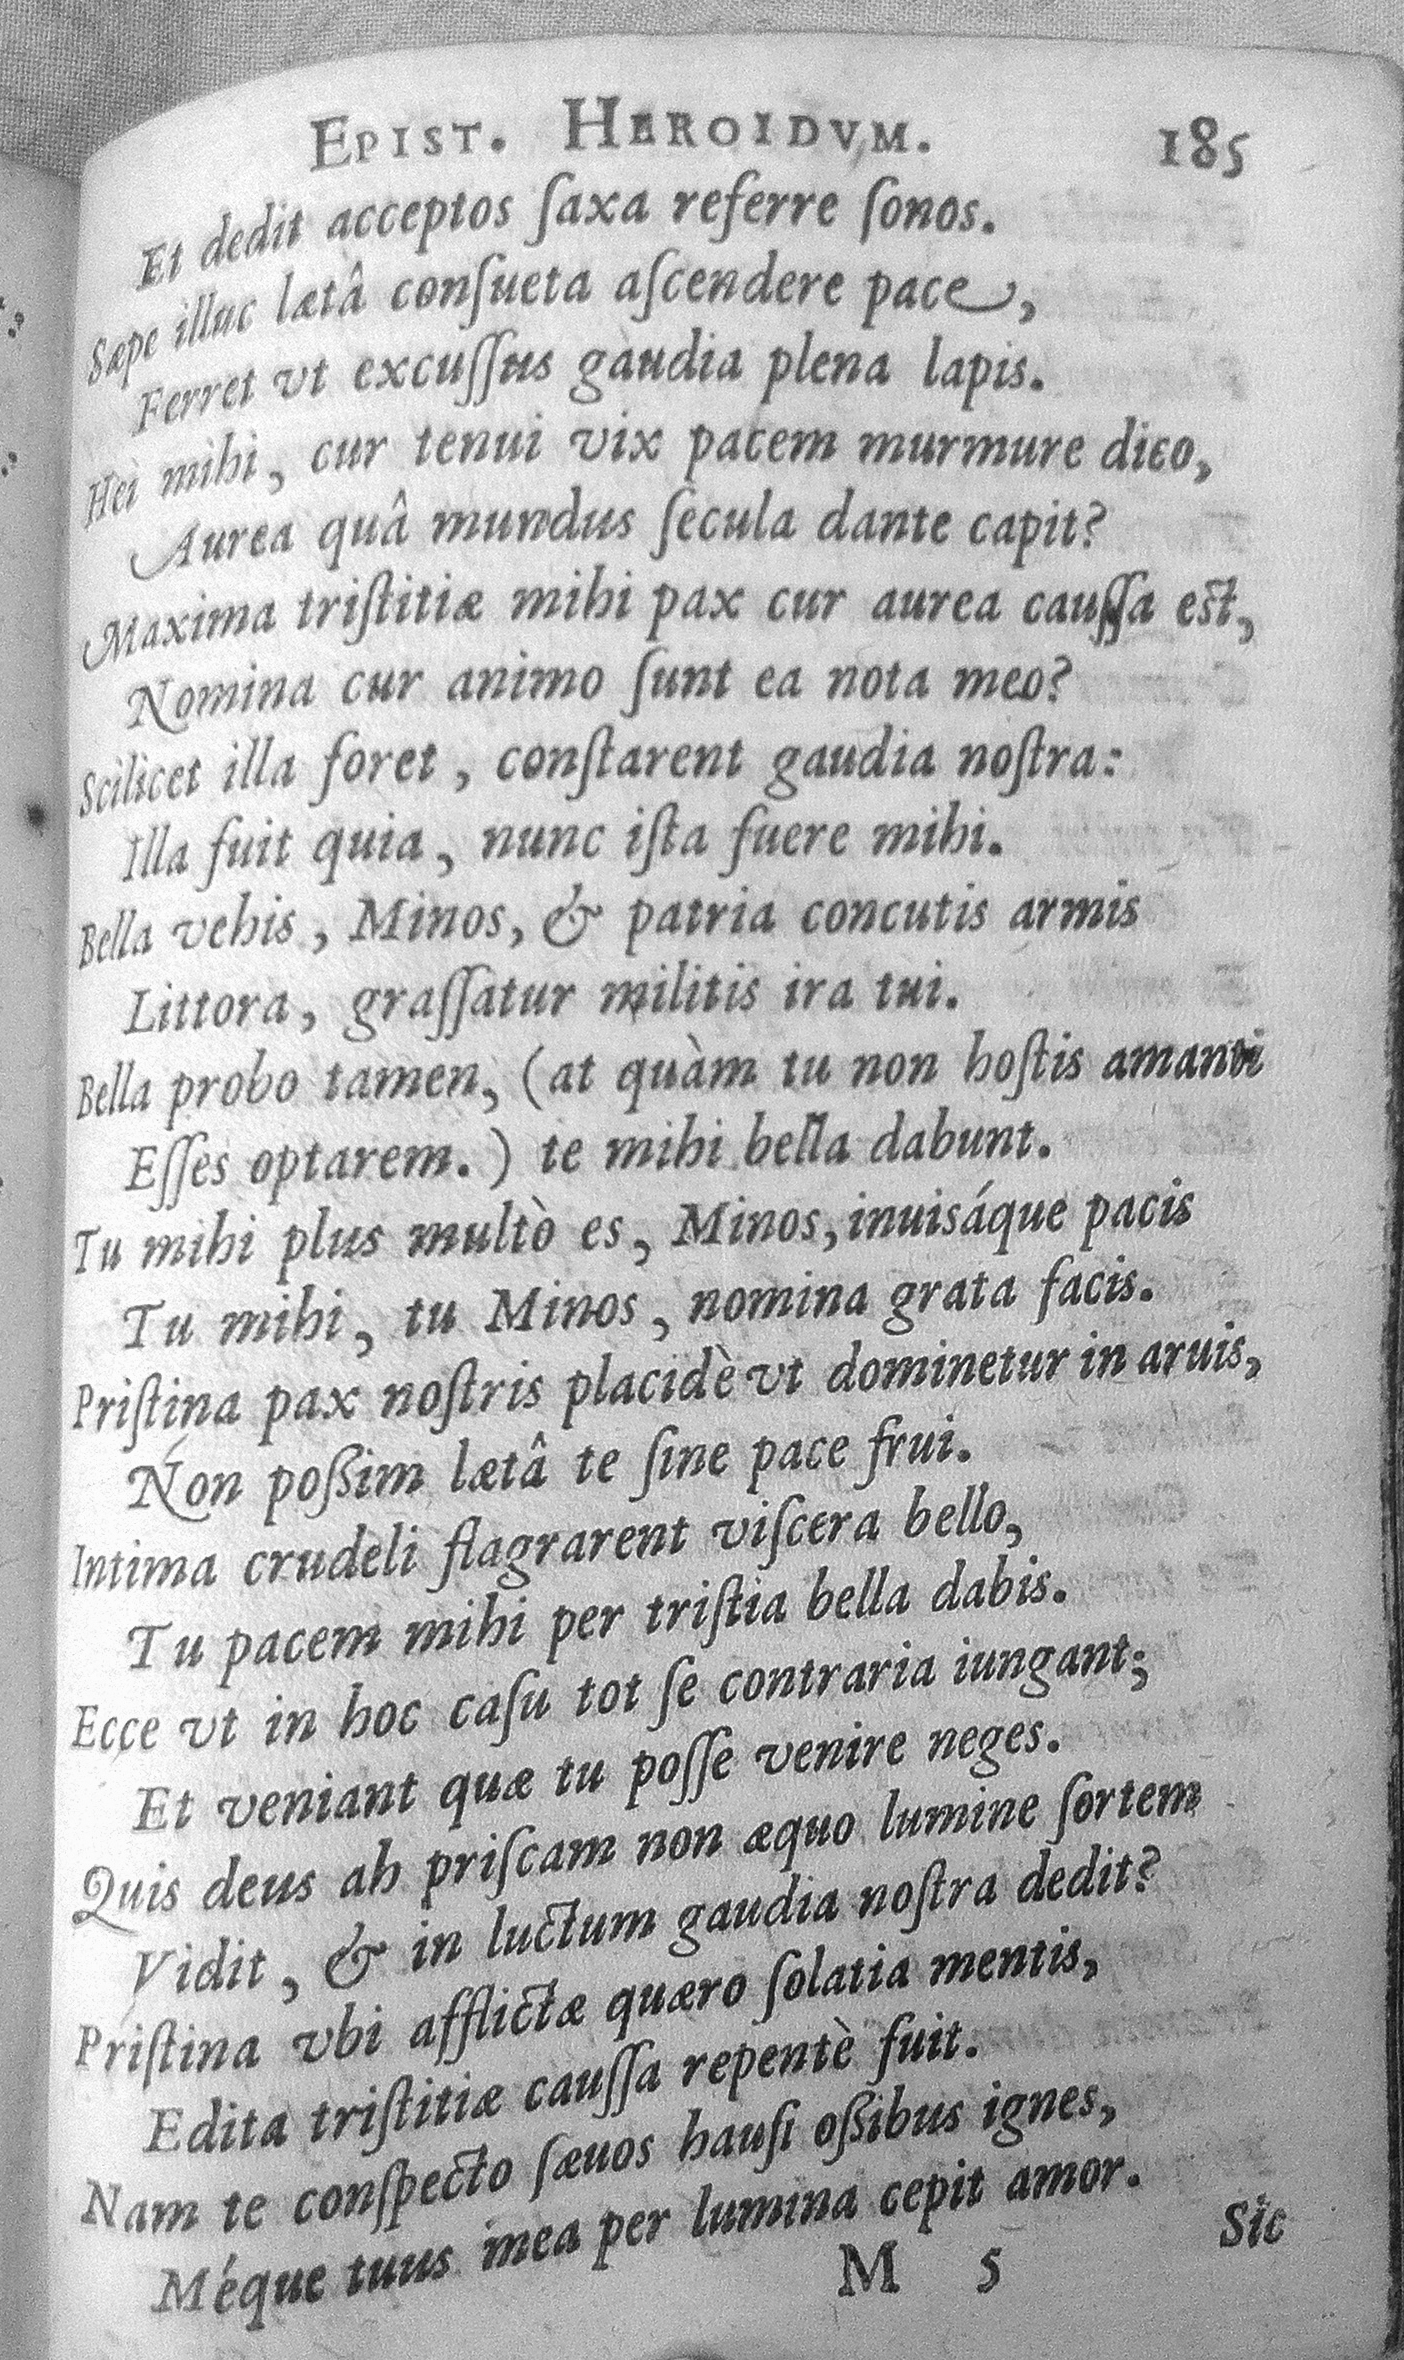 EPIST. HEROIDVM. 185
Et dedit acceptos ſaxa referre ſonos.
Sæpe illuc lætâ conſueta aſcendere pace,
Ferret vt excuſſus gaudia plena lapis.
Hei mihi, cur tenui vix pacem murmure dico,
Aurea quâ mundus ſecula dante capit?
Maxima triſtitiæ mihi pax cur aurea cauſſa eſt,
Nomina cur animo ſunt ea nota meo?
Scilicet illa foret, conſtarent gaudia noſtra:
Illa fuit quia, nunc iſta fuere mihi.
Bella vehis, Minos, & patria concutis armis
Littora, graſſatur militis ira tui.
Bella probo tamen, (at quàm tu non hoſtis amanti
Eſſes optarem.) te mihi bella dabunt.
Tu mihi plus multò es, Minos, inuisáque pacis
Tu mihi, tu Minos, nomina grata facis.
Priſtina pax noſtris placidè vt dominetur in aruis,
Non poſſim lætâ te ſine pace frui.
Intima crudeli flagrarent viſcera bello,
Tu pacem mihi per triſtia bella dabis.
Ecce vt in hoc caſu tot ſe contraria iungant;
Et veniant quæ tu poſſe venire neges.
Quis deus ah priſcam non æquo lumine ſortem
Vidit, & in luctum gaudia noſtra dedit?
Priſtina vbi afflictæ quæro ſolatia mentis,
Edita triſtitiæ cauſſa repentè fuit.
Nam te conſpecto ſæuos hauſi oſſibus ignes,
Méque tuus mea per lumina cepit amor.
M 5 Sic